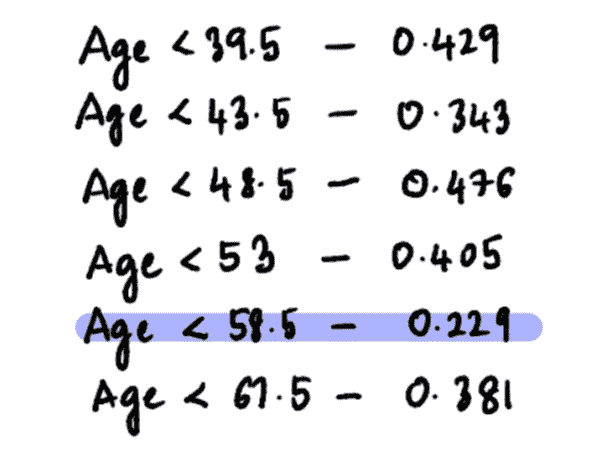 Age < 39.5 – 0.429
Age < 43.5 – 0.343
Age < 48.5 – 0.476
Age < 53 – 0.405
Age < 58.5 – 0.229
Age < 67.5 – 0.381